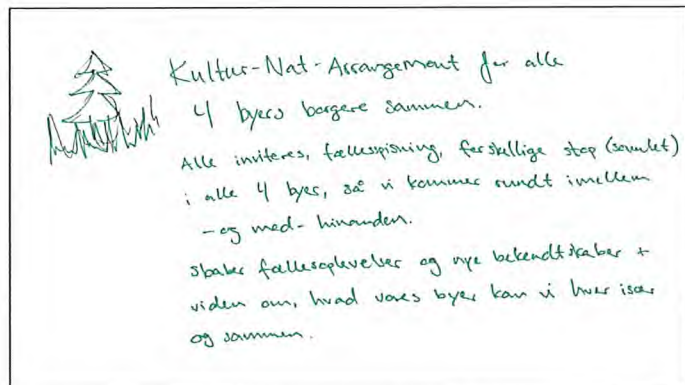 Kultur-Nat-Arrangement for alle
4 byers borgere sammen.
Alle inviteres, fællesspisning, forskellige stop (samlet)
i alle 4 byer, så vi kommer rundt imellem
- og med - hinanden.
skaber fællesoplevelser og nye bekendtskaber +
viden om, hvad vores byer kan vi hver især
og sammen.